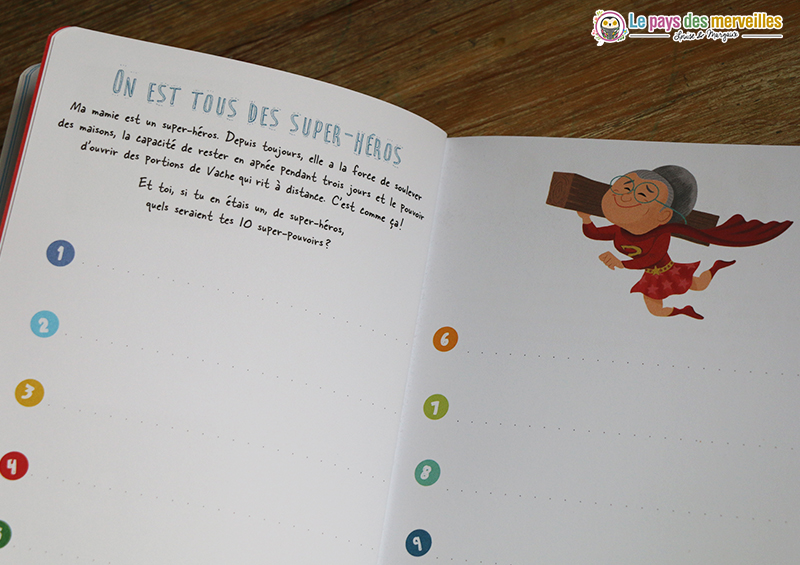 Le pays des merveilles
Louise & Margaux
On est tous des super-héros
Ma mamie est un super-héros. Depuis toujours, elle a la force de soulever
des maisons, la capacité de rester en apnée pendant trois jours et le pouvoir
d'ouvrir des portions de Vache qui rit à distance. C'est comme ça !
Et toi, si tu en étais un, de super-héros,
quels seraient tes 10 super-pouvoirs ?
1
2
3
4
5
6
7
8
9